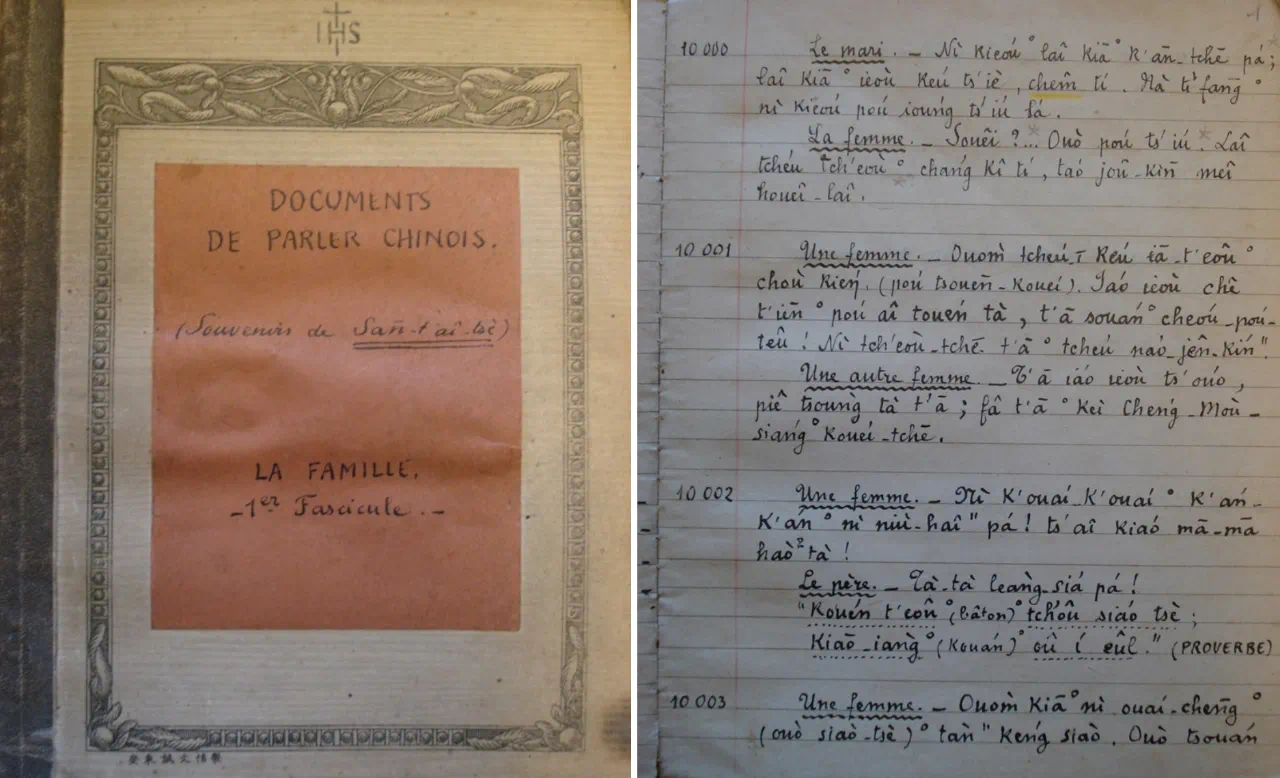 IHS
DOCUMENTS
DE PARLER CHINOIS.
(Souvenirs de Sañ-t'aî-tsè)
LA FAMILLE.
-1er Fascicule.-
1
10 000 Le mari. _ Nì kieoú° laî kiā° k'ān-tchē pá;
laî kiā° ieoù keú ts'iè, chem̂ tí. Nà tí fanḡ°
nì kieoú poú ioung ts'iú lá.
La femme. _ Souêi ?... Ouò poú ts'iú. Laî
tcheú tch'eoù° chanǵ kî tí, taó joû-kiñ meî
houeî-laî.
10 001 Une femme. _ Ouom̀ tcheú-ī keú iā-t'eoû°
choù kień. (poú tsoueñ-koueí). Iaó ieoù chê
t'iēn° poú aî toueń tà, t'ā souań° cheoú-poú-
teû ! Nì tch'eoù-tchē t'ā° tcheú naó-jên-kiń".
Une autre femme. _ T'ā iáo ieoù ts'ouó,
piê tsoung̀ tà t'ā; fâ t'ā° keì Cheng̀-Moù-
siang° koueí-tchē.
10 002 Une femme. _ Nì k'ouaí-k'ouaí° k'ań-
k'ań° nì niù-haî" pá ! ts'aî kiaó mā-mā
haò² tà !
Le père. _ Tà-tà leang̀-siá pá !
"Kouén t'eoû (bâton)° tch'oû siaó tsè;
Kiaō-iang̀° (kouań)° où í eûl." (PROVERBE)
10 003 Une femme. _ Ouom̀ kiā° nì ouaí-cheng̀°
(ouò siaò-tsè)° tañ" keńg siaò. Ouò tsouań